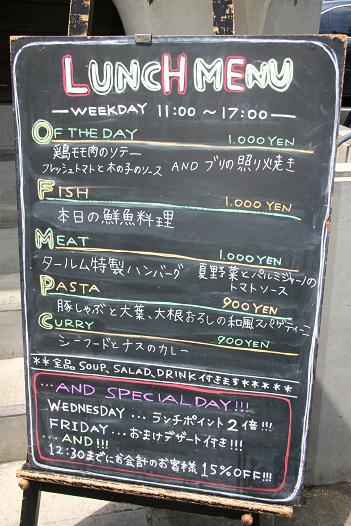 LUNCH MENU
—WEEKDAY 11:00 〜 17:00—
OF THE DAY 1.000 YEN
鶏モモ肉のソテー
フレッシュトマトと木の子のソース AND ブリの照り焼き
FISH 1.000 YEN
本日の鮮魚料理
MEAT 1.000 YEN
タールム特製ハンバーグ 夏野菜とパルミジャーノの
トマトソース
PASTA 900 YEN
豚しゃぶと大葉、大根おろしの和風スパゲティー
CURRY 900 YEN
シーフードとナスのカレー
**全品 SOUP, SALAD, DRINK 付きます*****
...AND SPECIAL DAY!!!
WEDNESDAY ... ランチポイント2倍!!!
FRIDAY ... おまけデザート付き!!!
...AND!!!
12:30までにお会計のお客様 15%OFF!!!